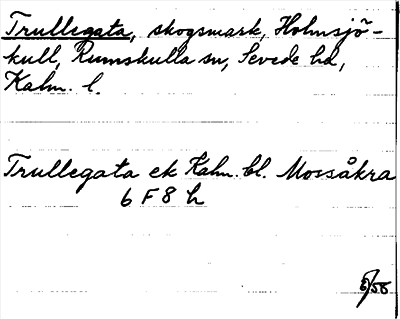 Trullegata, skogsmark, Holmsjö-
kull, Rumskulla sn, Sevede hd,
Kalm. l.
Trullegata ek Kalm. bl. Mossåkra
6 F 8 h
/58